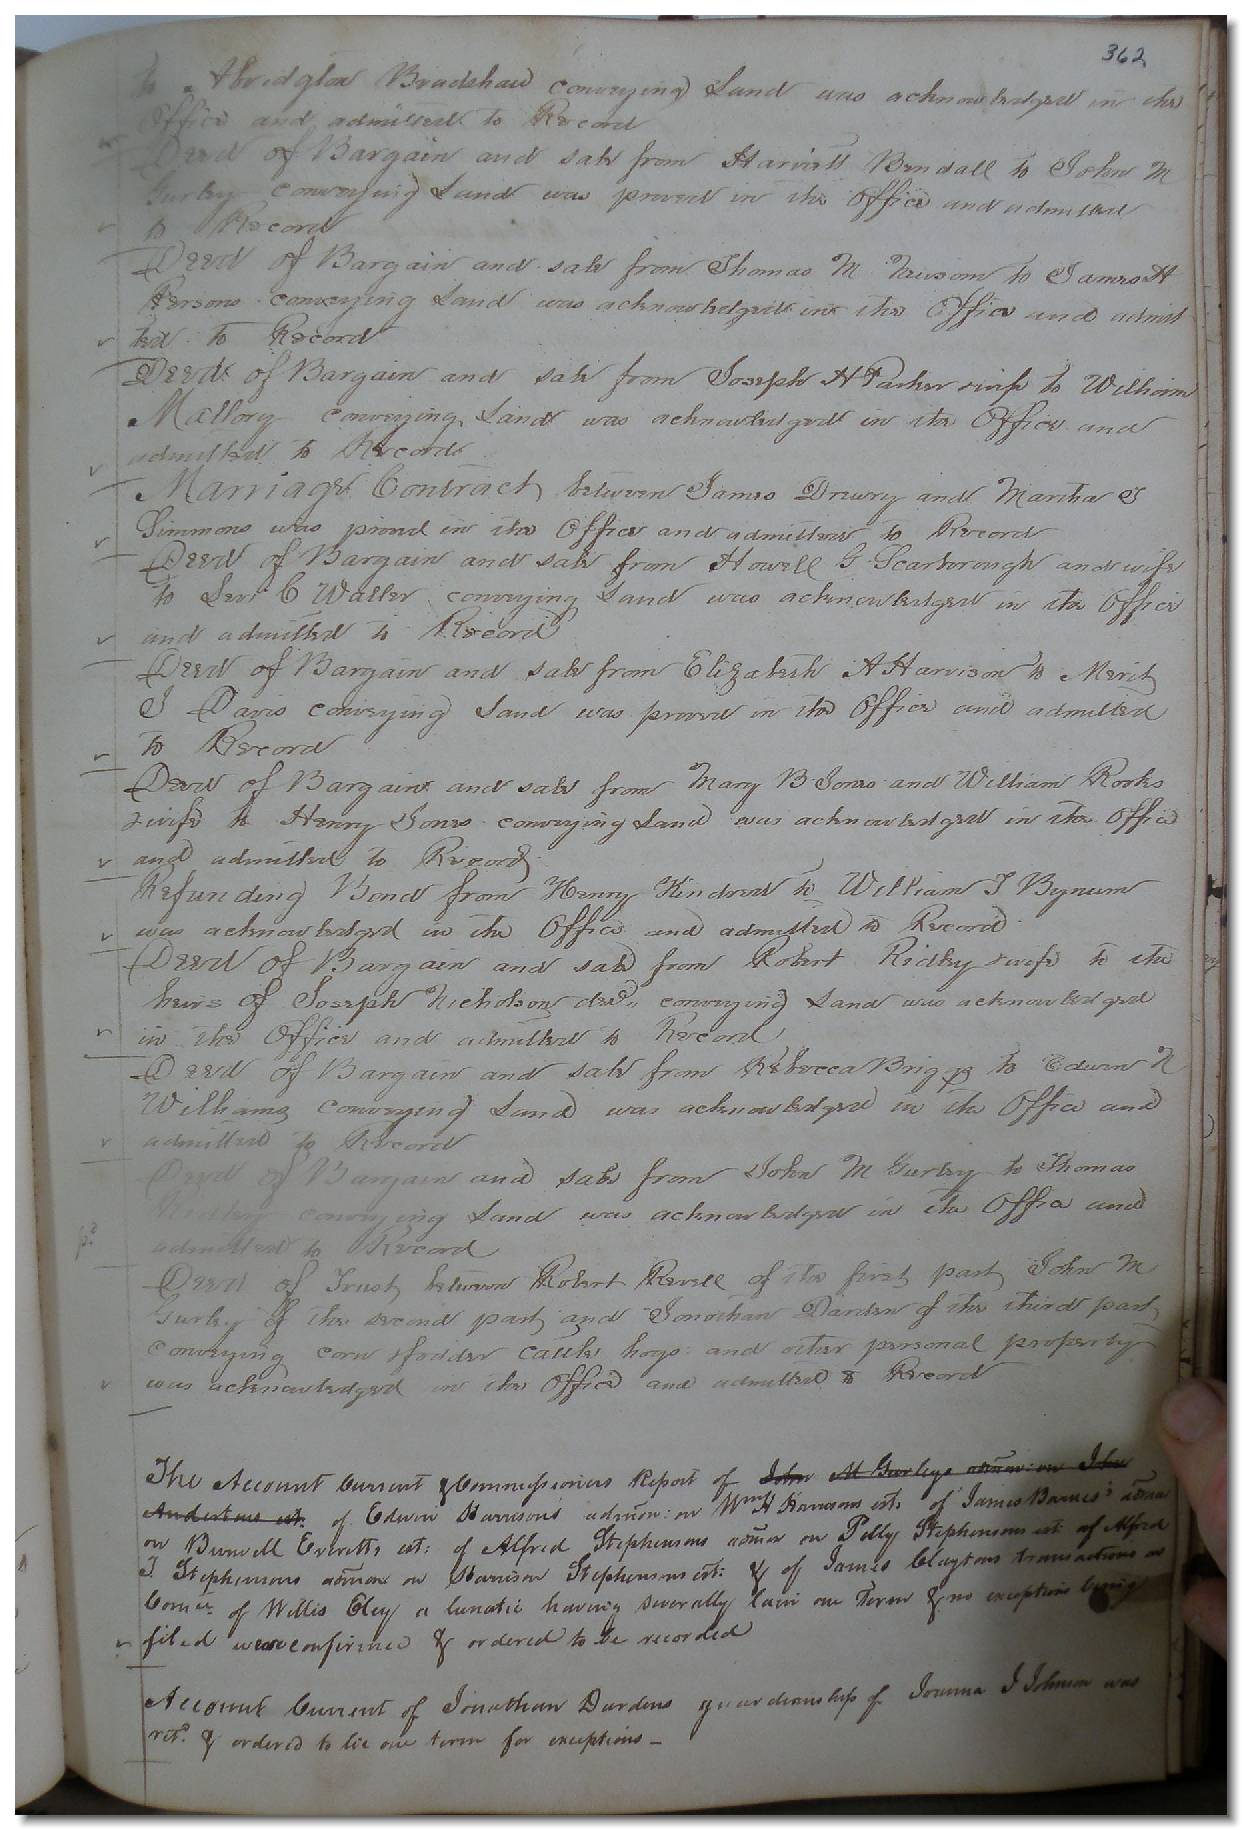 362
to Abridgton Bradshaw conveying Land was acknowledged in the
Office and admitted to Record
Deed of Bargain and sale from Harriett Bendall to John M
Gurley conveying Land was proved in the Office and admitted
to Record
Deed of Bargain and sale from Thomas M Newsom to James H
Persons conveying Land was acknowledged in the Office and admit
ted to Record
Deed of Bargain and sale from Joseph H Parker & wife to William
Mallory conveying Land was acknowledged in the Office and
admitted to Record
Marriage Contract between James Drewry and Martha T
Simmons was proved in the Office and admitted to Record
Deed of Bargain and sale from Howell G Scarborough and wife
to Levi C Waller conveying Land was acknowledged in the Office
and admitted to Record
Deed of Bargain and sale from Elizabeth A Harrison to Merit
J Davis conveying Land was proved in the Office and admitted
to Record
Deed of Bargain and sale from Mary B Jones and William Rooks
& wife to Henry Jones conveying Land was acknowledged in the Office
and admitted to Record
Refunding Bond from Henry Kindred to William J Bynum
was acknowledged in the Office and admitted to Record
Deed of Bargain and sale from Robert Ridley & wife to the
heirs of Joseph Nicholson decd. conveying Land was acknowledged
in the Office and admitted to Record
Deed of Bargain and sale from Rebecca Briggs to Edwin N
Williams conveying Land was acknowledged in the Office and
admitted to Record
Deed of Bargain and sale from John M Gurley to Thomas
Ridley conveying Land was acknowledged in the Office and
admitted to Record
Deed of Trust between Robert Revell of the first part John M
Gurley of the second part and Jonathan Darden of the third part
conveying corn & fodder cattle hogs and other personal property
was acknowledged in the Office and admitted to Record
The Account Current & Commissioners Report of John M Gurleys admr: on John
est: of Edwin Harrisons admon: on Wm H Harrisons est: of James Barnes' admr
on Burwell Everetts est: of Alfred Stephensons admr on Polly Stephensons est: of Alfred
J Stephensons admon on Harrison Stephensons est: & of James Claytons transactions as
Comee of Willis Eley a lunatic having severally lain one Term & no exceptions being
filed were confirmed & ordered to be recorded
Account Current of Jonathan Dardens guardianship of Joanna J Johnson was
retd. & ordered to lie one term for exceptions –